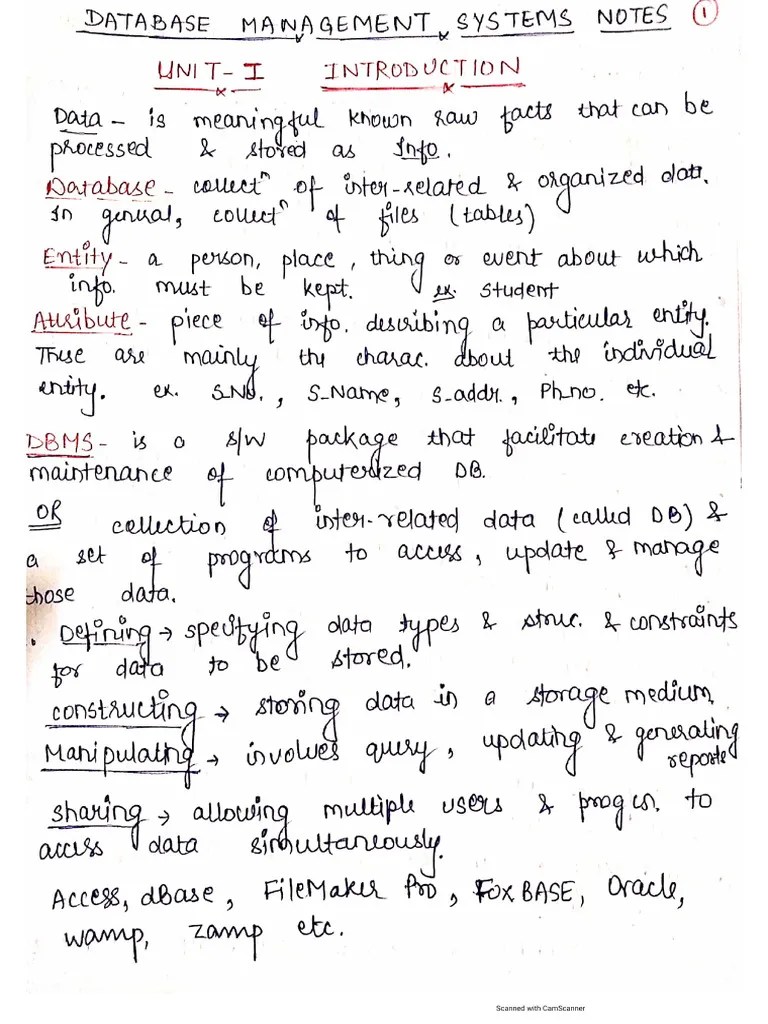 DATABASE MANAGEMENT SYSTEMS NOTES 1
UNIT-I INTRODUCTION
Data - is meaningful known raw facts that can be
processed & stored as Info.
Database - collectⁿ of inter-related & organized data.
In general, collectⁿ of files (tables)
Entity - a person, place, thing or event about which
info. must be kept. ex. student
Attribute - piece of info. describing a particular entity.
These are mainly the charac. about the individual
entity. ex. S_No., S_Name, S_addr., Ph_no. etc.
DBMS - is a s/w package that facilitate creation &
maintenance of computerized DB.
OR collection of inter-related data (called DB) &
a set of programs to access, update & manage
those data.
. Defining → specifying data types & struc. & constraints
for data to be stored.
constructing → storing data in a storage medium.
Manipulating → involves query, updating & generating
reports
sharing → allowing multiple users & progm. to
access data simultaneously.
Access, dBase, FileMaker Pro, FoxBASE, Oracle,
wamp, zamp etc.
Scanned with CamScanner